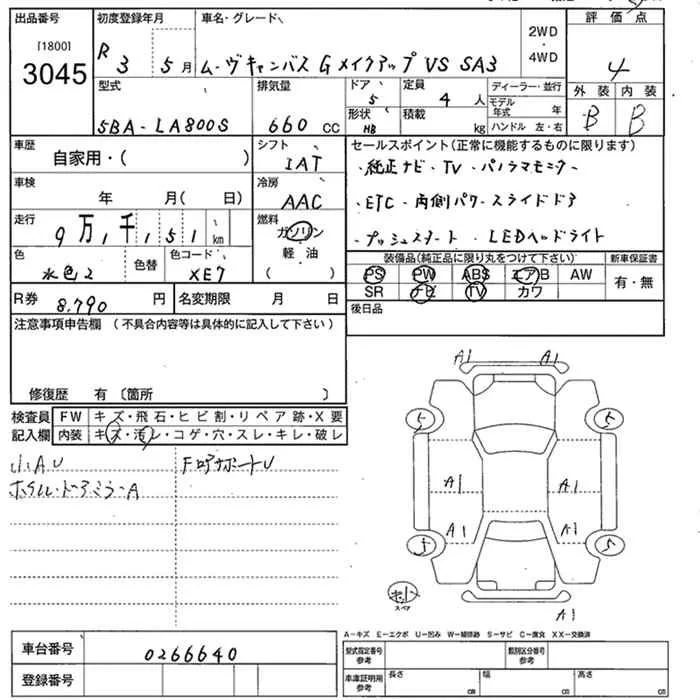 出品番号 初度登録年月 車名・グレード 2WD・4WD 評価点
[1800]
3045
R 3 5月 ムーヴキャンバス GメイクアップVS SA3 4
型式 排気量 ドア 5 定員 4人 ディーラー・並行 外装 内装
5BA-LA800S 660 CC 形状 HB 積載 kg モデル年式 年 B B
ハンドル 左・右
車歴 シフト セールスポイント(正常に機能するものに限ります)
自家用・( ) IAT ・純正ナビ・TV・パノラマモニター
車検 年 月( 日) 冷房 AAC ・ETC・両側パワースライドドア
走行 9万, 千, 151 km 燃料 ガソリン 軽・油 ( ) ・プッシュスタート ・LEDヘッドライト
色 水色2 色替 色コード XE7 装備品(純正品に限り丸をつけて下さい) 新車保証書
PS PW ABS エアB AW 有・無
SR ナビ TV カワ
R券 8,790 円 名変期限 月 日 後日品
注意事項申告欄 (不具合内容等は具体的に記入して下さい)
修復歴 有 〔箇所 〕
検査員 FW キズ・飛石・ヒビ割・リペア跡・X要
記入欄 内装 キズ・汚レ・コゲ・穴・スレ・キレ・破レ
小A U
ホイル・ドアミラーA
A1 A1
5 5
A1 A1
A1 A1
5 5
スペア
A1
A-キズ E-エクボ U-凹み W-補修跡 S-サビ C-腐食 XX-交換済
車台番号 0266640 型式指定番号 参考 類別区分番号 参考
登録番号 車庫証明用 参考 長さ cm 幅 cm 高さ cm